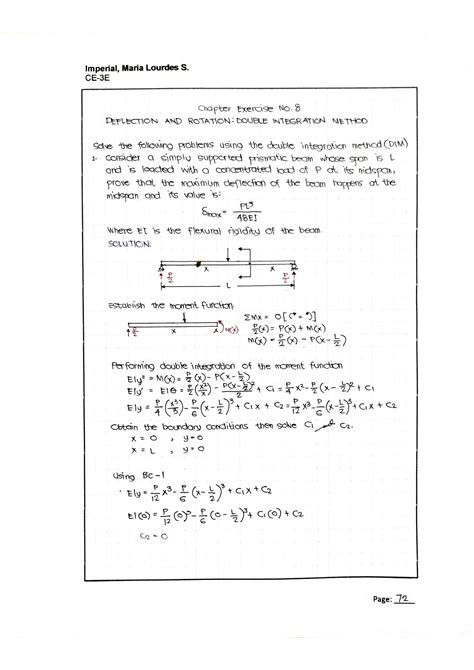 Imperial, Maria Lourdes S.
CE-3E
Chapter Exercise No. 8
DEFLECTION AND ROTATION: DOUBLE INTEGRATION METHOD
Solve the following problems using the double integration method (DIM)
1. Consider a simply supported prismatic beam whose span is L
and is loaded with a concentrated load of P at its midspan,
prove that the maximum deflection of the beam happens at the
midspan and its value is:
δmax = PL³/48EI
Where EI is the flexural rigidity of the beam.
SOLUTION:
P/2 x P/2
L
Establish the moment function
P/2 x x M(x)
ΣMx = 0
P/2(x) = P(x) + M(x)
M(x) = P/2(x) - P(x - L/2)
Performing double integration of the moment function
EIy" = M(x) = P/2(x) - P(x - L/2)
EIy' = EIθ = P/2(x²/2) - P(x - L/2)²/2 + C1 = P/4 x² - P/2(x - L/2)² + C1
EIy = P/4(x³/3) - P/6(x - L/2)³ + C1x + C2 = P/12 x³ - P/6(x - L/2)³ + C1x + C2
Obtain the boundary conditions then solve C1 and C2.
x = 0 , y = 0
x = L , y = 0
Using BC-1
EIy = P/12 x³ - P/6(x - L/2)³ + C1x + C2
EI(0) = P/12(0)³ - P/6(0 - L/2)³ + C1(0) + C2
C2 = 0
Page: 72